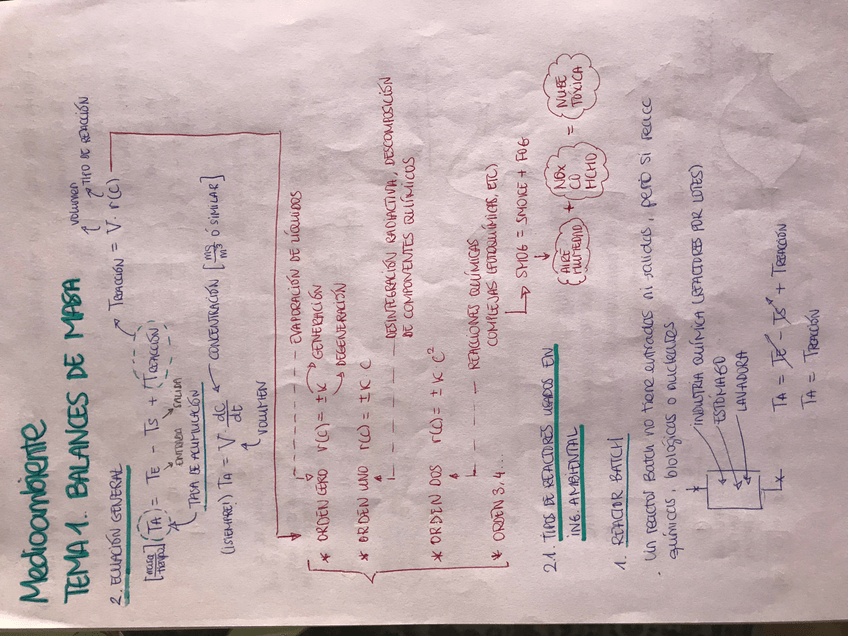 Medioambiente
TEMA 1. BALANCES DE MASA
2. ECUACIÓN GENERAL
[masa/tiempo] (TA) = TE - TS + (TREACCIÓN)
ENTRADA
SALIDA
TASA DE ACUMULACIÓN
TREACCIÓN = V · r(C)
VOLUMEN
TIPO DE REACCIÓN
(¡SIEMPRE!) TA = V · dC/dt
VOLUMEN
CONCENTRACIÓN [mg/m³ Ó SIMILAR]
EVAPORACIÓN DE LÍQUIDOS
* ORDEN CERO r(C) = ± K
GENERACIÓN
DEGENERACIÓN
* ORDEN UNO r(C) = ± K C
DESINTEGRACIÓN RADIACTIVA, DESCOMPOSICIÓN
DE COMPONENTES QUÍMICOS
* ORDEN DOS r(C) = ± K C²
REACCIONES QUÍMICAS
COMPLEJAS (FOTOQUÍMICAS, ETC)
* ORDEN 3, 4...
SMOG = SMOKE + FOG
AIRE HUMEDAD + NOx CO HCHO = NUBE TÓXICA
2.1. TIPOS DE REACTORES USADOS EN
ING. AMBIENTAL
1. REACTOR BATCH
· Un reactor Batch no tiene entradas ni salidas, pero sí reacc
químicas, biológicas o nucleares
INDUSTRIA QUÍMICA (REACTORES POR LOTES)
ESTÓMAGO
LAVADORA
TA = TE - TS + TREACCIÓN
TA = TREACCIÓN